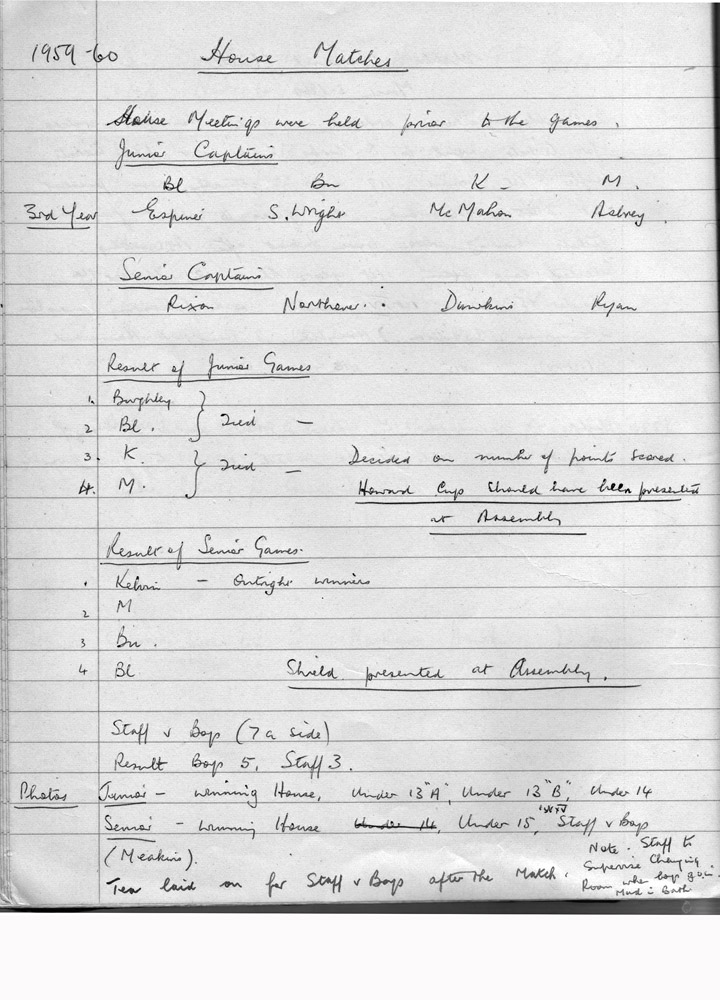 1959-60 House Matches
House Meetings were held prior to the games.
Junior Captains
Bl Bu K - M.
3rd Year Espiner S. Wright McMahon
Senior Captains
Rixon Dawkins Ryan
Result of Junior Games
1. Burghley
2 Bl. } Tied -
3. K.
4. M. } Tied - Decided on number of points scored.
Howard Cup should have been presented
at Assembly
Result of Senior Games.
1 Kelvin - Outright winners
2 M
3 Bu.
4 Bl Shield presented at Assembly.
Staff v Boys (7 a side)
Result Boys 5, Staff 3.
Photos Junior - winning House, Under 13 "A", Under 13 "B", Under 14
Senior - winning House Under 14, Under 15, 1st XV, Staff v Boys
(Meakins).
Tea laid on for Staff v Boys after the Match.
Note. Staff to
Supervise Changing
Room when boys go in.
Mud in Bath